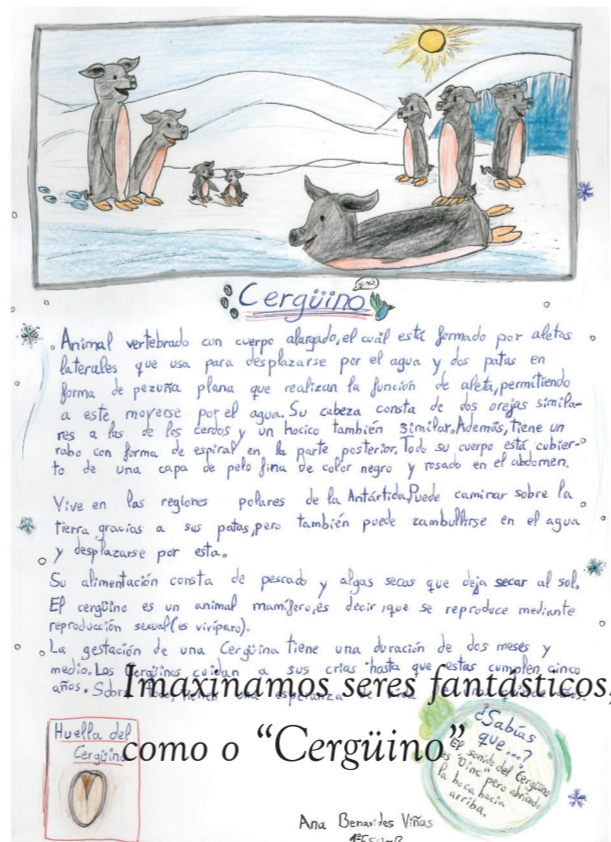 Oinc!
Cergüino
Animal vertebrado con cuerpo alargado, el cuál está formado por aletas
laterales que usa para desplazarse por el agua y dos patas en
forma de pezuña plana que realizan la función de aleta, permitiendo
a este, moverse por el agua. Su cabeza consta de dos orejas simila-
res a las de los cerdos y un hocico también similar. Además, tiene un
rabo con forma de espiral en la parte posterior. Todo su cuerpo está cubier-
to de una capa de pelo fina de color negro y rosado en el abdomen.
Vive en las regiones polares de la Antártida. Puede caminar sobre la
tierra gracias a sus patas, pero también puede zambullirse en el agua
y desplazarse por esta.
Su alimentación consta de pescado y algas secas que deja secar al sol.
El cergüino es un animal mamífero, es decir, que se reproduce mediante
reproducción sexual (es vivíparo).
La gestación de una Cergüina tiene una duración de dos meses y
medio. Los Cergüinos cuidan a sus crias hasta que estas cumplen cinco
años. Sobre todo, tienen una esperanza de vida de
Imaxinamos seres fantásticos,
como o “Cergüino”
Huella del
Cergüino
¿Sabías
que...?
El sonido del Cergüino
es "Oinc" pero abriendo
la boca hacia
arriba.
Ana Benavides Viñas
1º ESO